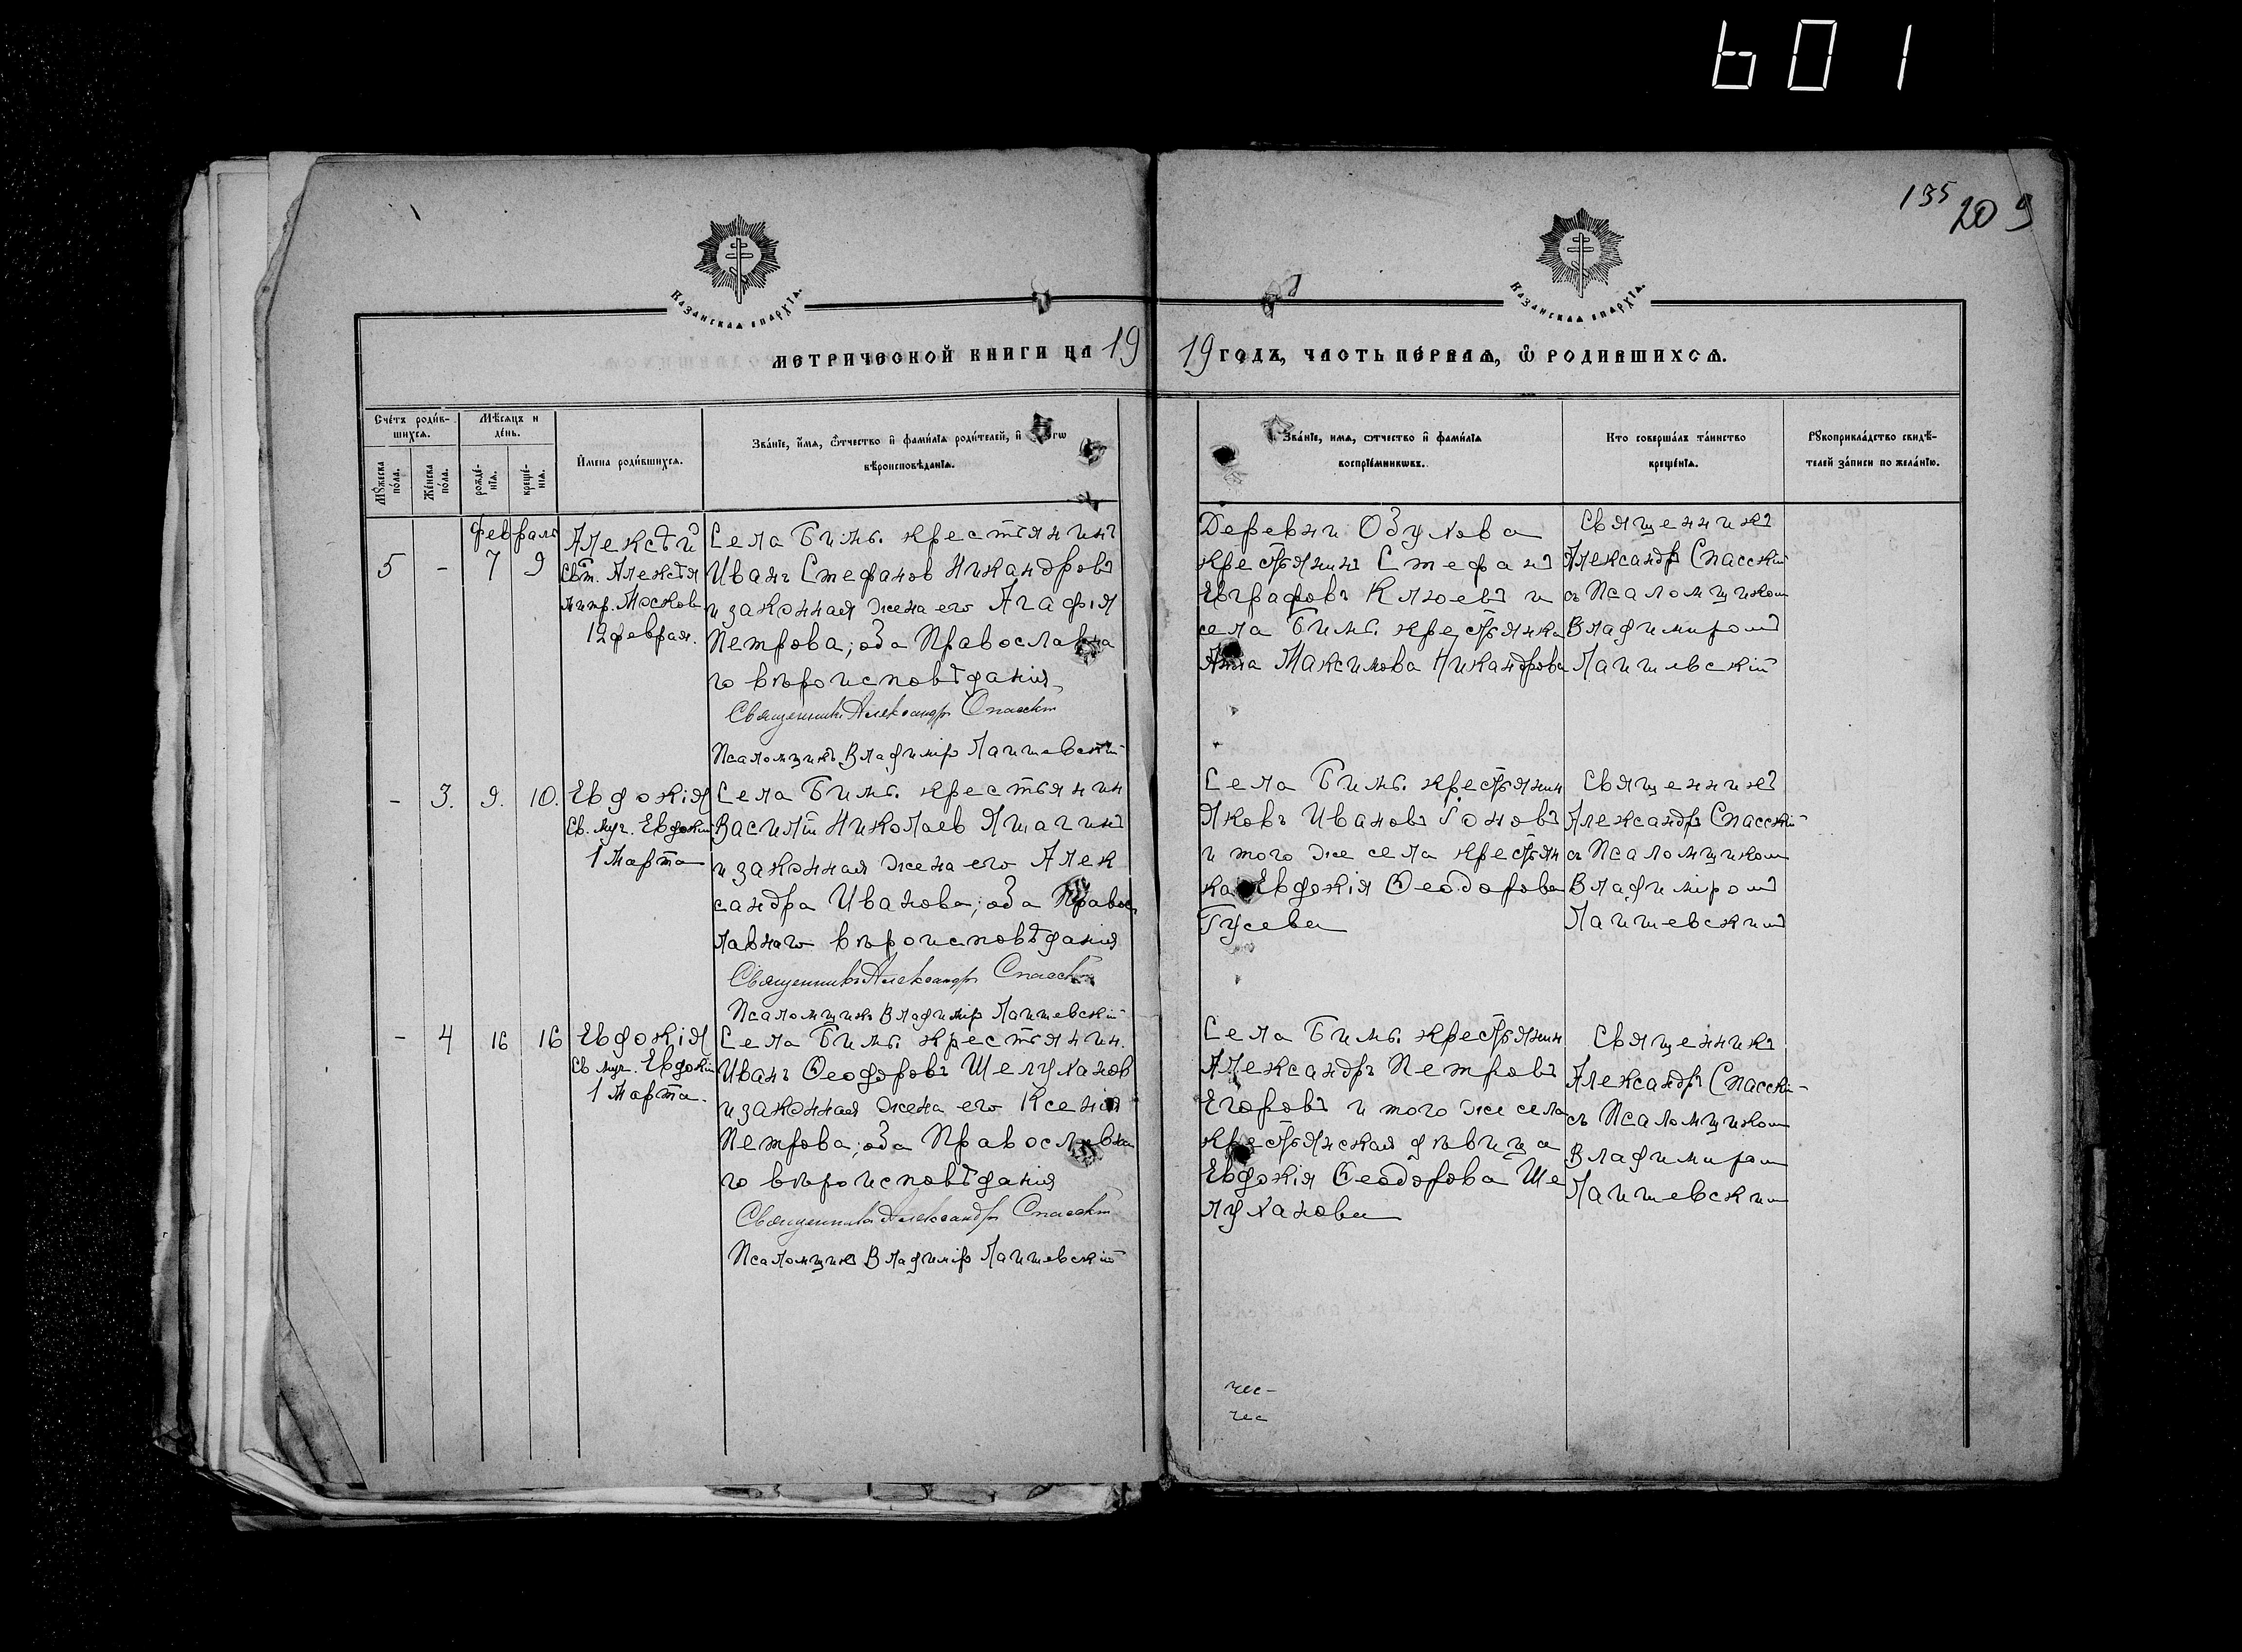 601
135
209
Казанская епархїа.
Казанская епархїа.
Метрической книги на 1919 годъ, часть пе́рвая, ѡ родившихся.
Сче́тъ роди́в-
шихся.
Мѣсяцъ и
де́нь.
И҆мена роди́вшихся.
Зва́нїе, и҆́мя, ѻ҆́тчество и҆ фами́лїя роди́телей, и҆
вѣроисповѣ́данїя.
Мꙋжеска
по́ла.
Же́нска
по́ла.
рожде́-
нїя.
креще́-
нїя.
Зва́нїе, имя, ѻтчество и҆ фами́лїя
воспрїе́мникѡвъ.
Кто соверша́лъ та́инство
креще́нїя.
Рꙋкоприкла́дство свидѣ́-
телей за́писи по жела́нїю.
февраль
5 - 7 9
Алексѣй
Свт. Алексѣя
митр. Москов
12 феврал.
Села Бимь. крестьянинъ
Иванъ Стефанов Никандровъ
и законная жена его Агафія
Петрова; оба Православна
го вѣроисповѣданія
Священникъ Александръ Спасскій
Псаломщикъ Владиміръ Лаишевскій
Деревни Обухова
крестьянинъ Стефанъ
Евграфовъ Клюевъ и
села Бимь. крестьянка
Анна Максимова Никандрова
Священникъ
Александръ Спасскій
съ Псаломщиком
Владимиромъ
Лаишевскій
- 3. 9. 10.
Евдокія
Св. муч. Евдокіи
1 Марта
Села Бимь. крестьянин
Василій Николаев Яшагинъ
и законная жена его Алек
сандра Иванова; оба Правос
лавнаго вѣроисповѣданія
Священникъ Александръ Спасскій
Псаломщикъ Владиміръ Лаишевскій
Села Бимь. крестьянин
Яковъ Ивановъ Гоновъ
и того же села крестьян
ка Евдокія Ѳеодорова
Гусева
Священникъ
Александръ Спасскій
съ Псаломщиком
Владиміромъ
Лаишевскимъ
- 4 16 16
Евдокія
Св муч. Евдокіи
1 Марта.
Села Бимь. крестьянин.
Иванъ Ѳеодоровъ Шелуханов
и законная жена его Ксенія
Петрова; оба Православна
го вѣроисповѣданія
Священникъ Александръ Спасскій
Псаломщикъ Владиміръ Лаишевскій
Села Бимь. крестьянин
Александръ Петровъ
Егоровъ и того же села
крестьянская дѣвица
Евдокія Ѳеодорова Ше
луханова
Священникъ
Александръ Спасскій
съ Псаломщиком
Владимиром
Лаишевским
чес-
чес